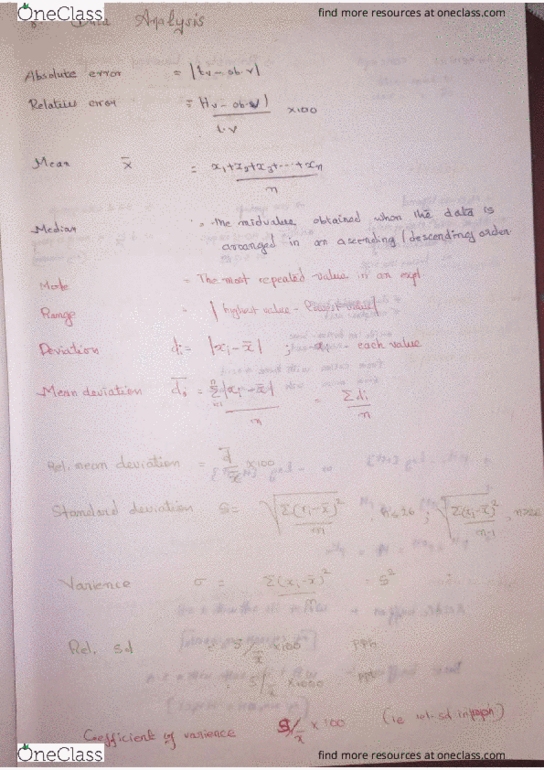 OneClass
find more resources at oneclass.com
Data Analysis
Absolute error = |tv - ob.v|
Relative error = |tv - ob.v| x100
t.v
Mean x̄ = x₁+x₂+x₃+----+xₙ
n
Median = the midvalue obtained when the data is
arranged in an ascending / descending order
Mode = The most repeated value in an expt
Range = | highest value - lowest value|
Deviation dᵢ = |xᵢ-x̄| ; xᵢ - each value
Mean deviation d̄ᵢ = Σ|xᵢ-x̄| = Σdᵢ
n n
Rel. mean deviation = d̄ x100
x̄
Standard deviation S= √Σ(xᵢ-x̄)² ; √Σ(xᵢ-x̄)²
n n-1
Varience σ = Σ(xᵢ-x̄)² = S²
Rel. sd = S/x̄ x100 PPh
= S/x̄ x1000 PPt
Coefficient of varience S/x̄ x 100 (ie rel. sd in pph)
OneClass
find more resources at oneclass.com